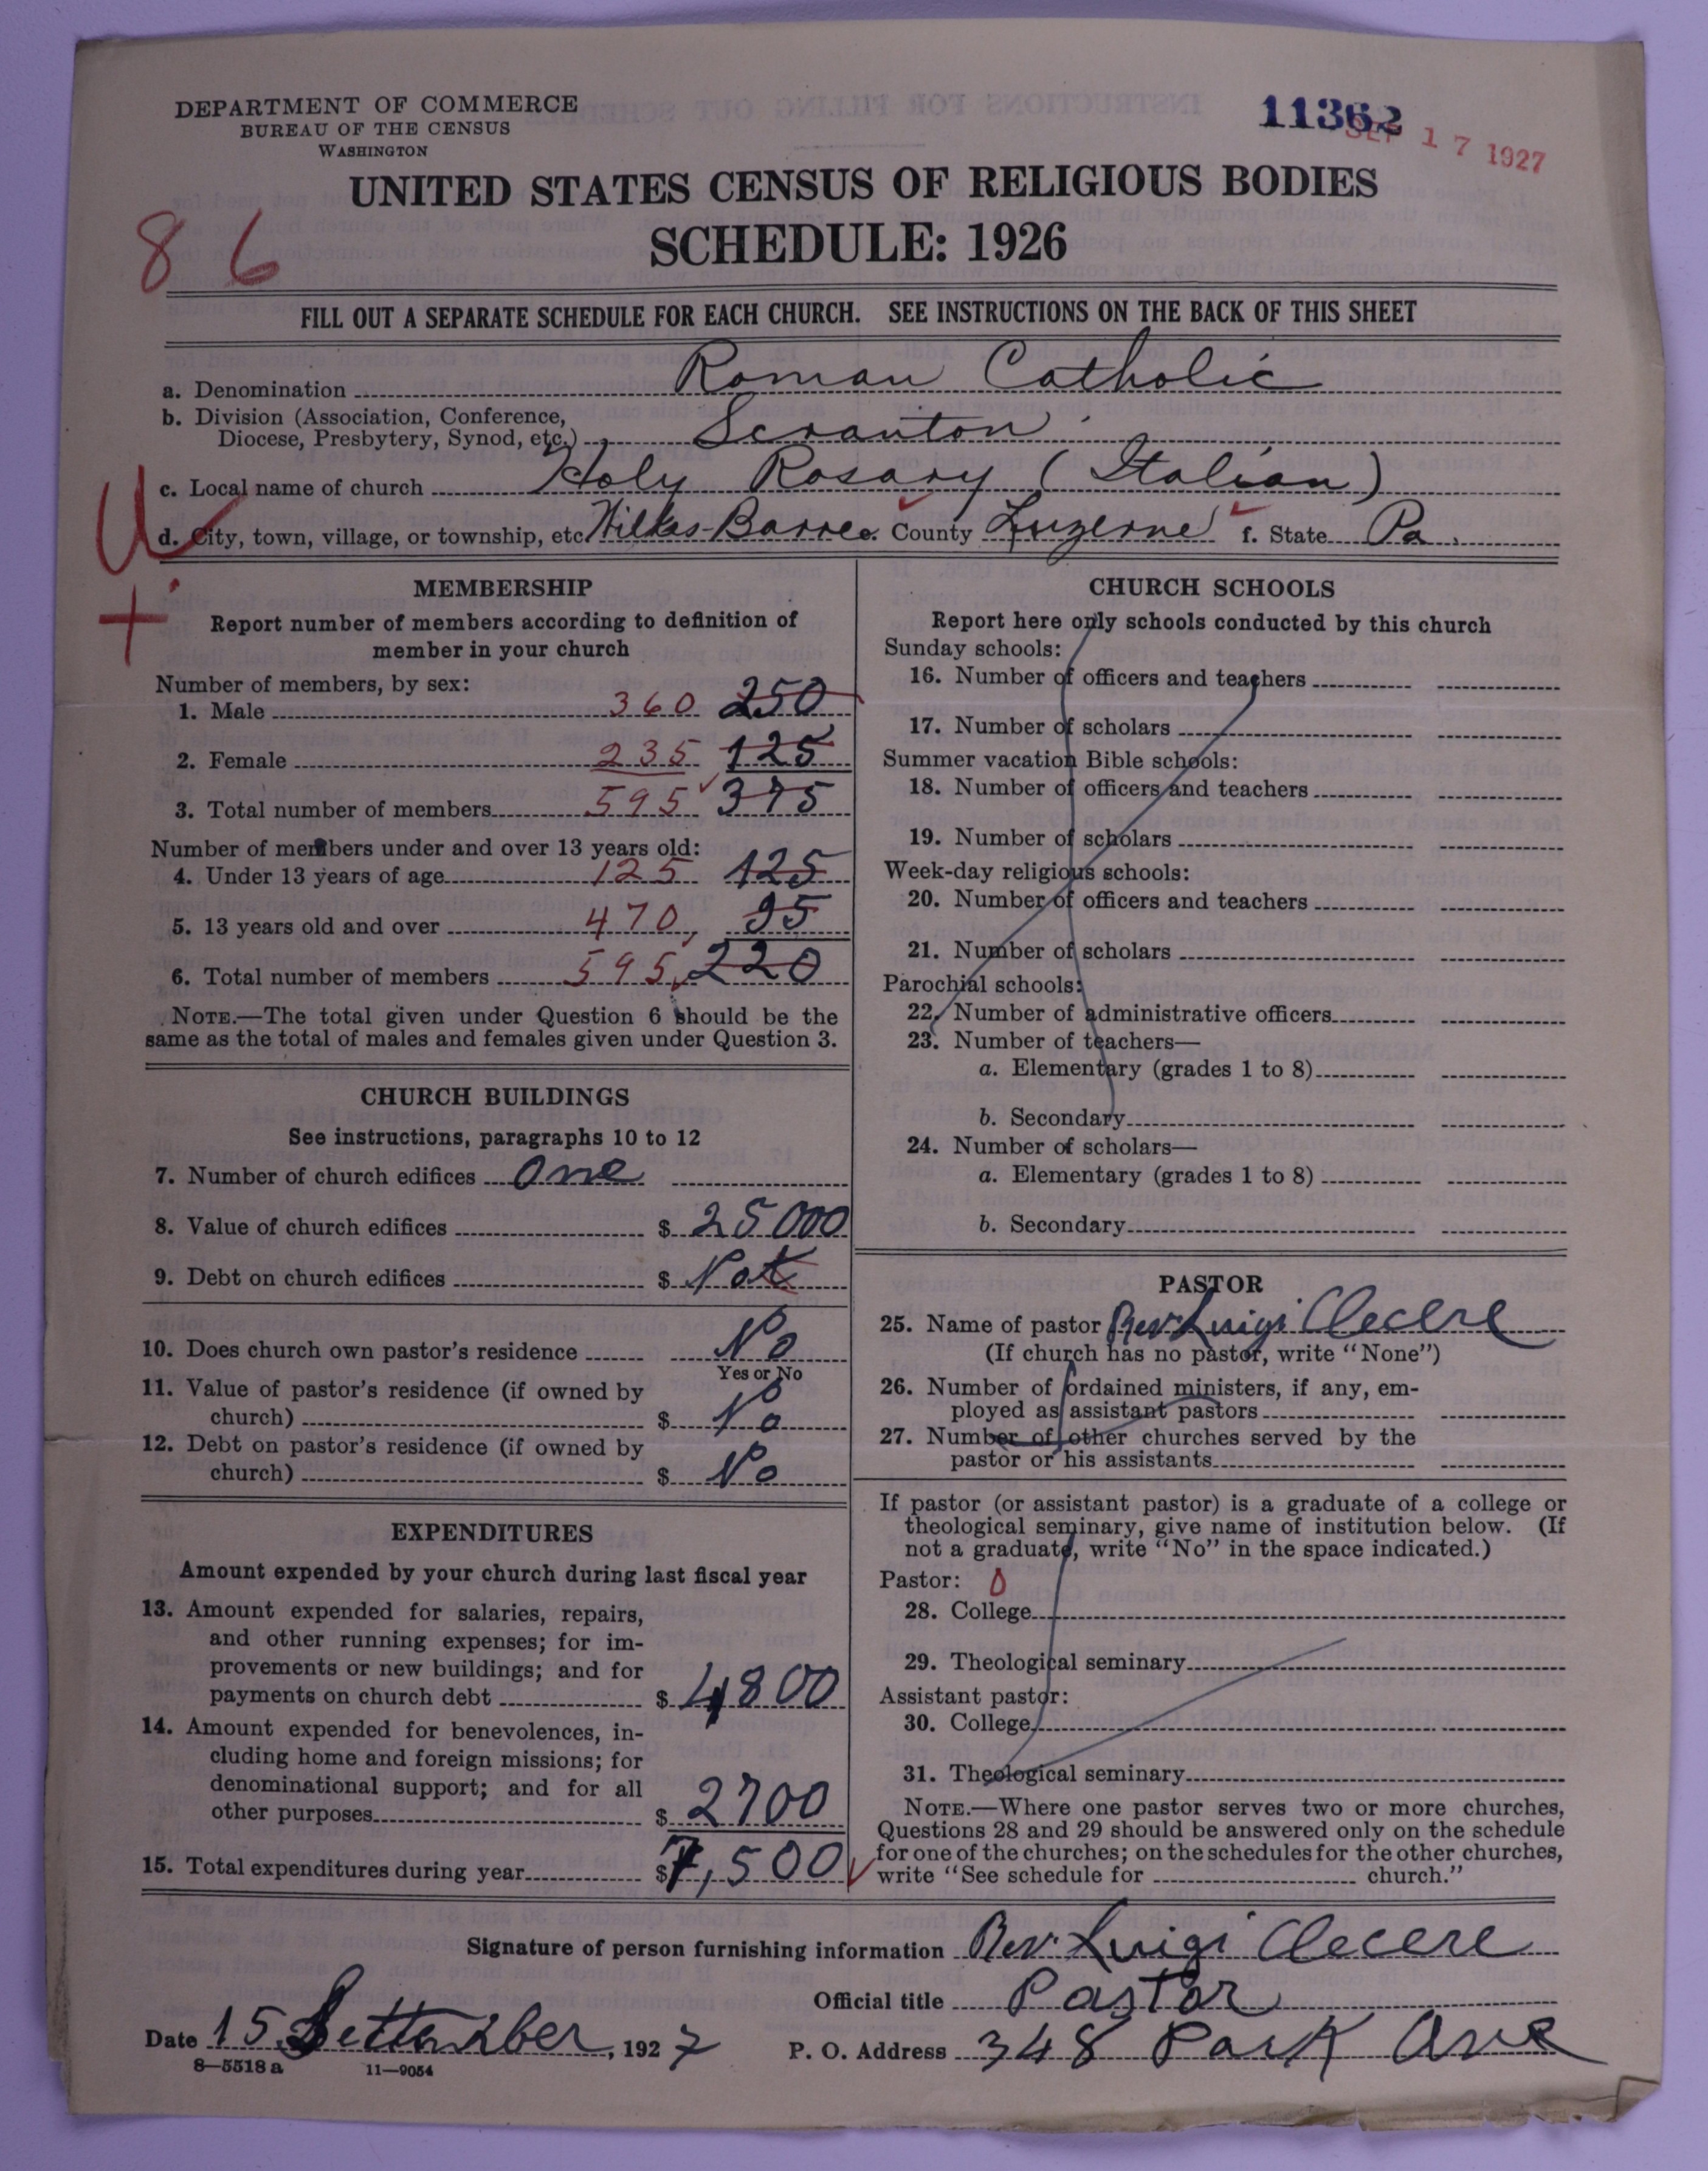 DEPARTMENT OF COMMERCE
BUREAU OF THE CENSUS
WASHINGTON
11362
SEP 17 1927
UNITED STATES CENSUS OF RELIGIOUS BODIES
SCHEDULE: 1926
86
FILL OUT A SEPARATE SCHEDULE FOR EACH CHURCH. SEE INSTRUCTIONS ON THE BACK OF THIS SHEET
a. Denomination Roman Catholic
b. Division (Association, Conference,
Diocese, Presbytery, Synod, etc.) Scranton
c. Local name of church Holy Rosary (Italian)
d. City, town, village, or township, etc. Wilkes-Barre e. County Luzerne f. State Pa.
MEMBERSHIP
Report number of members according to definition of
member in your church
Number of members, by sex:
1. Male 360 250
2. Female 235 125
3. Total number of members 595 375
Number of members under and over 13 years old:
4. Under 13 years of age 125 125
5. 13 years old and over 470 95
6. Total number of members 595 220
NOTE.—The total given under Question 6 should be the
same as the total of males and females given under Question 3.
CHURCH BUILDINGS
See instructions, paragraphs 10 to 12
7. Number of church edifices One
8. Value of church edifices $ 25000
9. Debt on church edifices $ Not
10. Does church own pastor's residence No
Yes or No
11. Value of pastor's residence (if owned by
church) $ No
12. Debt on pastor's residence (if owned by
church) $ No
EXPENDITURES
Amount expended by your church during last fiscal year
13. Amount expended for salaries, repairs,
and other running expenses; for im-
provements or new buildings; and for
payments on church debt $ 4800
14. Amount expended for benevolences, in-
cluding home and foreign missions; for
denominational support; and for all
other purposes $ 2700
15. Total expenditures during year $ 7,500
CHURCH SCHOOLS
Report here only schools conducted by this church
Sunday schools:
16. Number of officers and teachers
17. Number of scholars
Summer vacation Bible schools:
18. Number of officers and teachers
19. Number of scholars
Week-day religious schools:
20. Number of officers and teachers
21. Number of scholars
Parochial schools:
22. Number of administrative officers
23. Number of teachers—
a. Elementary (grades 1 to 8)
b. Secondary
24. Number of scholars—
a. Elementary (grades 1 to 8)
b. Secondary
PASTOR
25. Name of pastor Rev. Luigi
(If church has no pastor, write "None")
26. Number of ordained ministers, if any, em-
ployed as assistant pastors
27. Number of other churches served by the
pastor or his assistants
If pastor (or assistant pastor) is a graduate of a college or
theological seminary, give name of institution below. (If
not a graduate, write "No" in the space indicated.)
Pastor: 0
28. College
29. Theological seminary
Assistant pastor:
30. College
31. Theological seminary
NOTE.—Where one pastor serves two or more churches,
Questions 28 and 29 should be answered only on the schedule
for one of the churches; on the schedules for the other churches,
write "See schedule for church."
Signature of person furnishing information Rev. Luigi
Official title Pastor
Date 15 Settember, 1927 P. O. Address 348 Park Ave
8—5518 a 11—9054